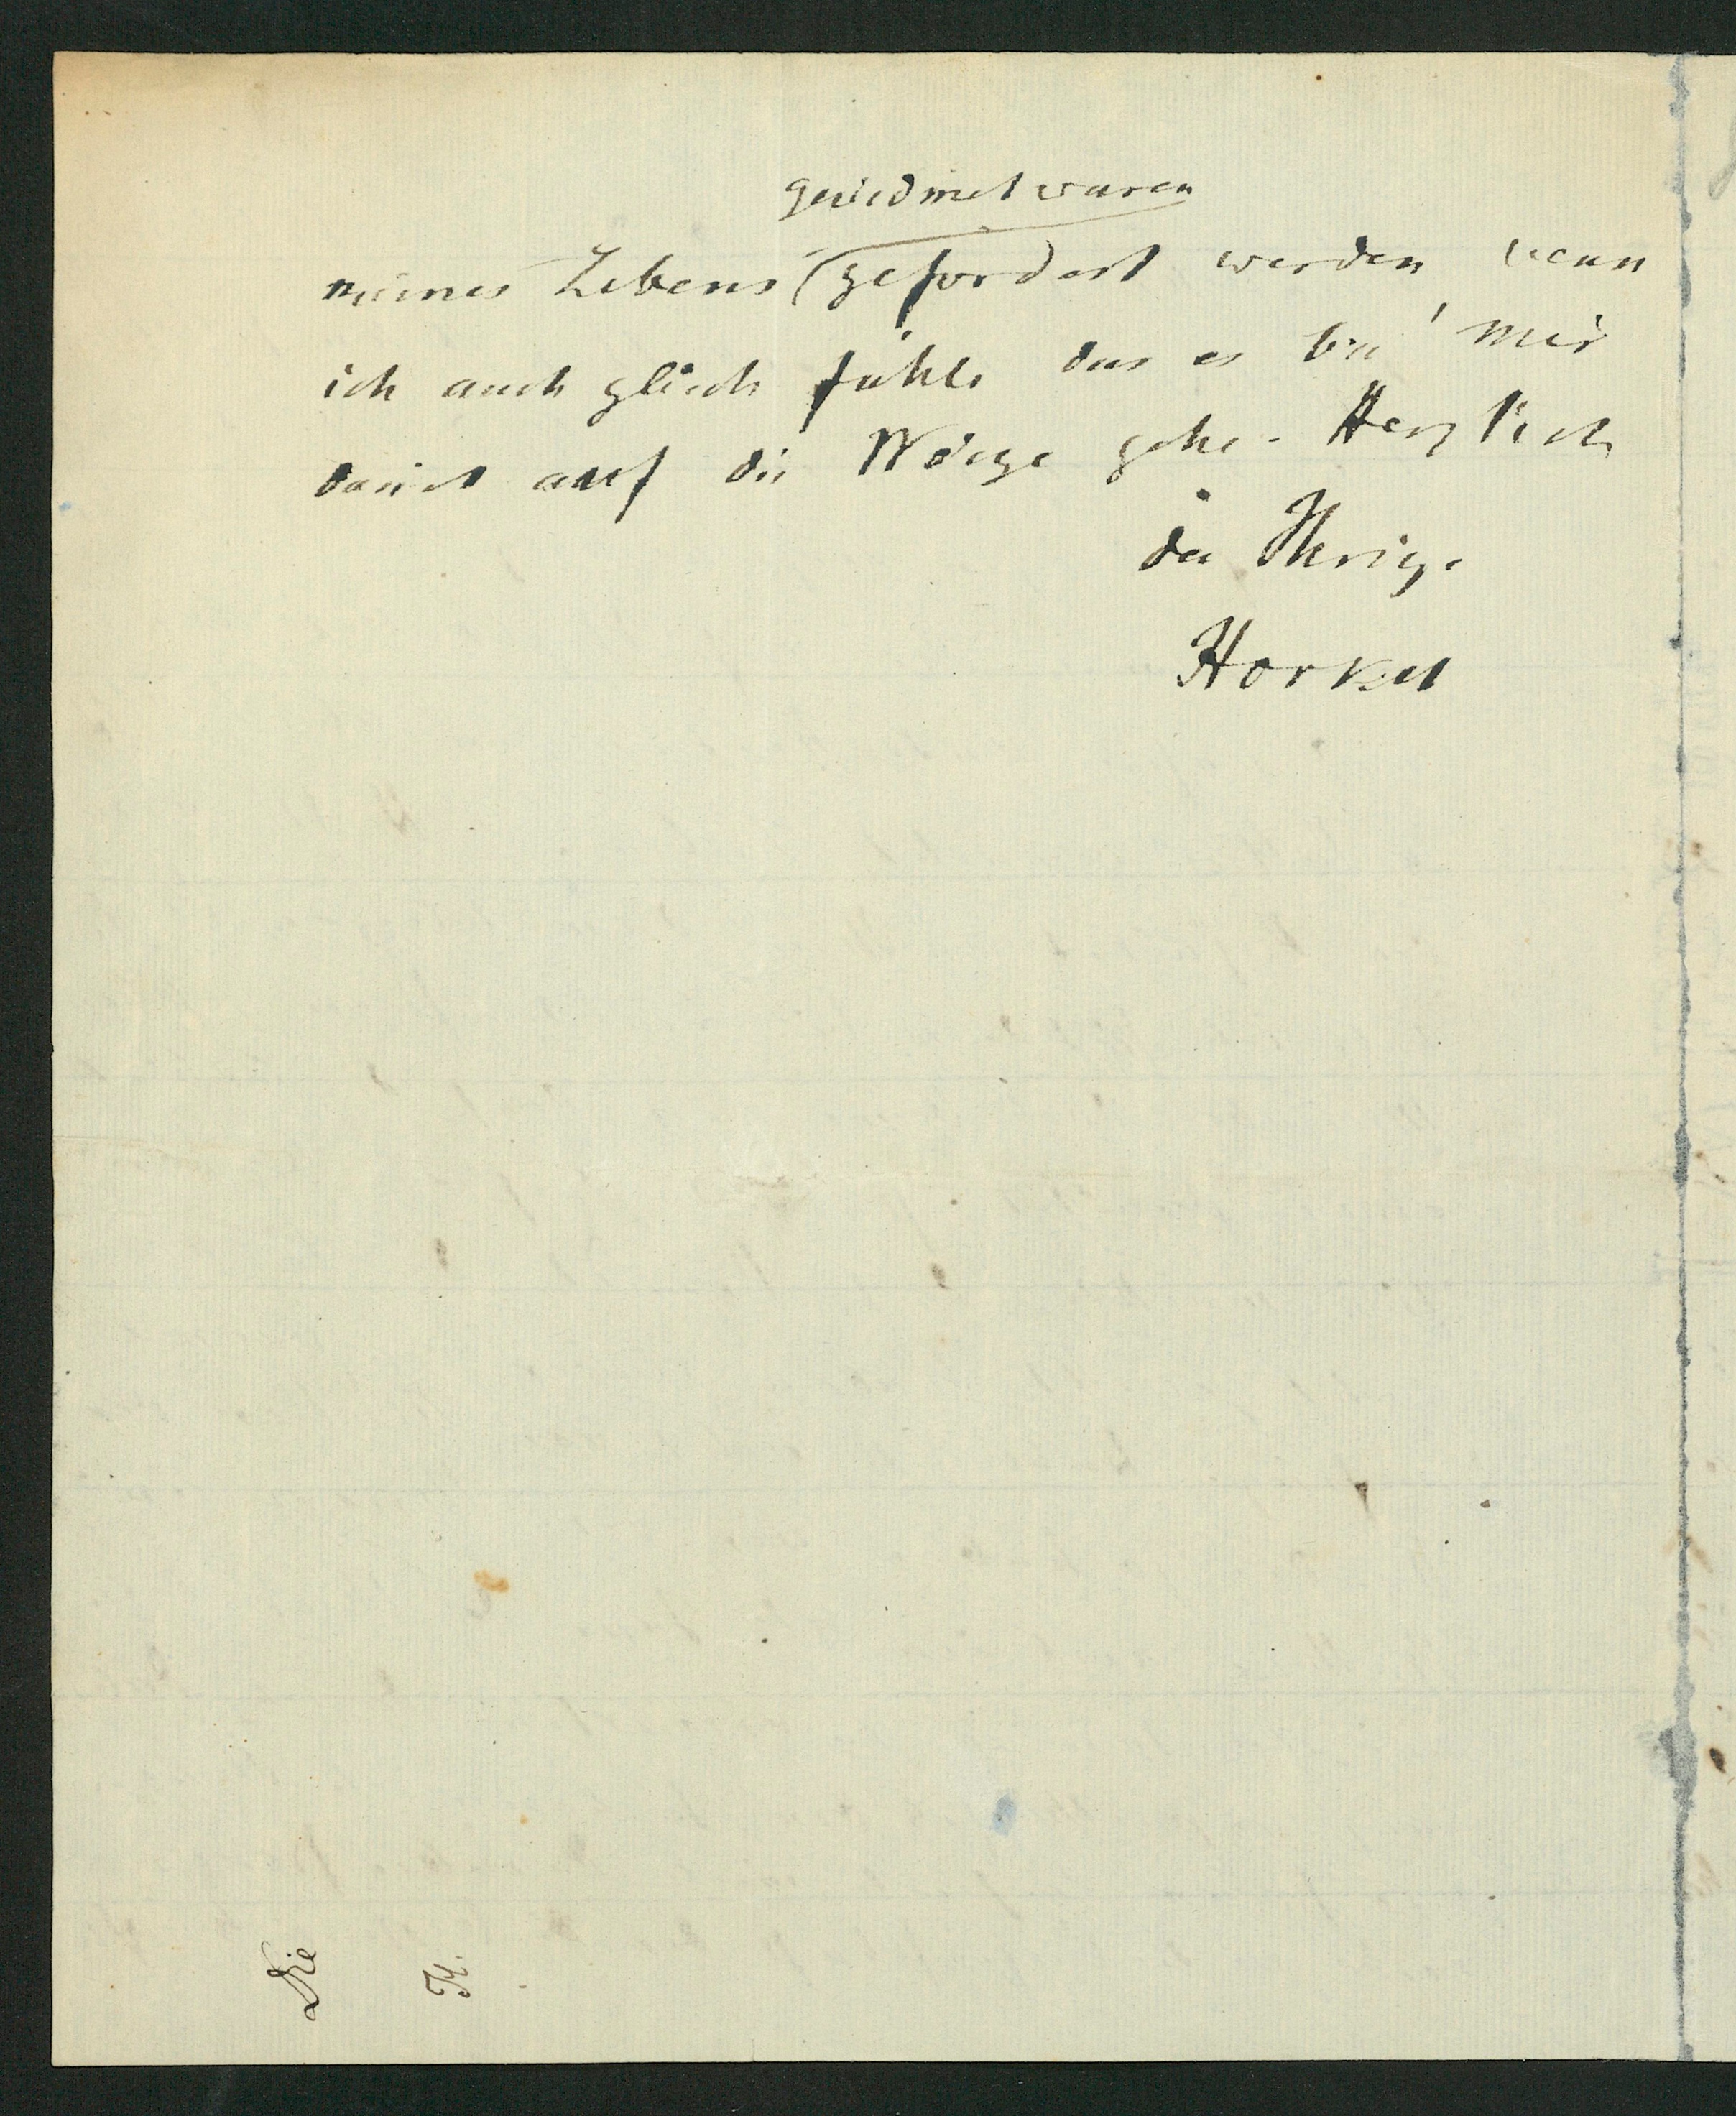 gewidmet waren
meines Lebens gefordert werden wenn
ich auch gleich fühle das es bei mir
damit auf die Neige gehe. Herzlich
der Ihrige
Horkel
Die
K.